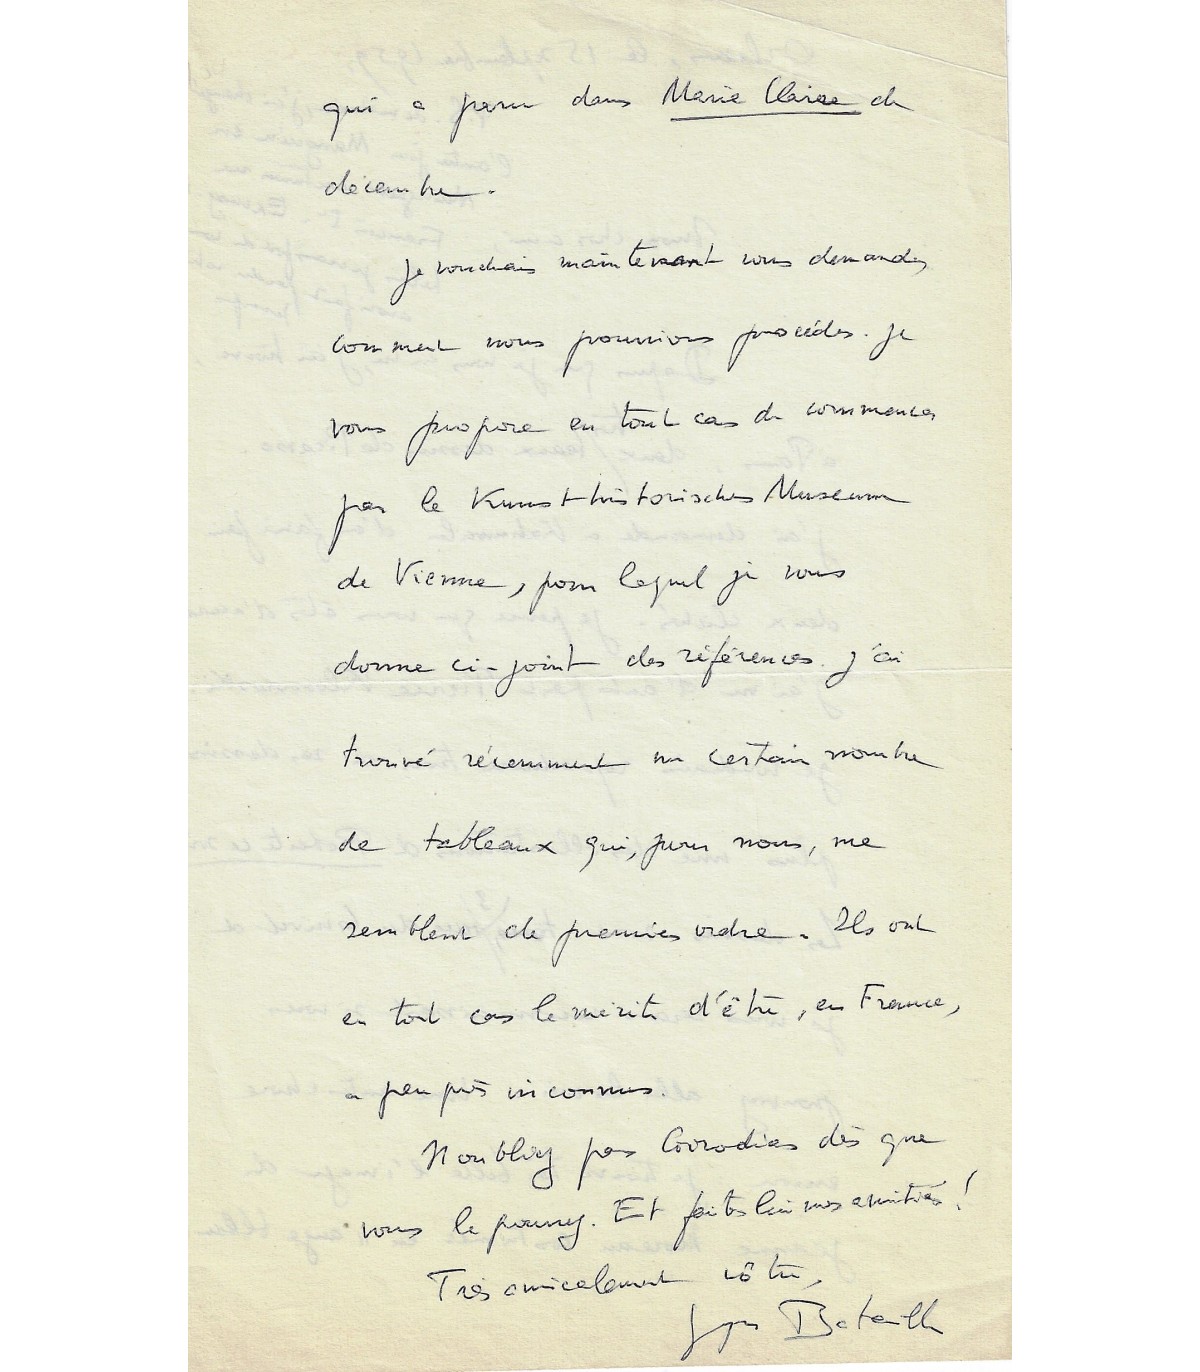 qui a paru dans Marie Claire de
décembre.
Je voudrais maintenant vous demander
comment nous pourrions procéder. Je
vous propose en tout cas de commencer
par le Kunsthistorisches Museum
de Vienne, pour lequel je vous
donne ci-joint des références. J'ai
trouvé récemment un certain nombre
de tableaux qui, pour nous, me
semblent de premier ordre. Ils ont
en tout cas le mérite d'être, en France,
à peu près inconnus.
N'oubliez pas Corrodias dès que
vous le pourrez. Et faites lui mes amitiés !
Très amicalement vôtre,
Georges Bataille